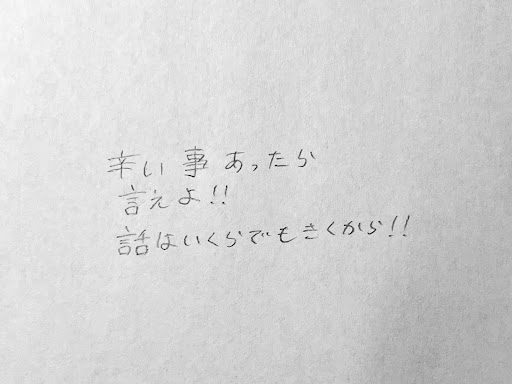 辛い事あったら
言えよ!!
話はいくらでもきくから!!